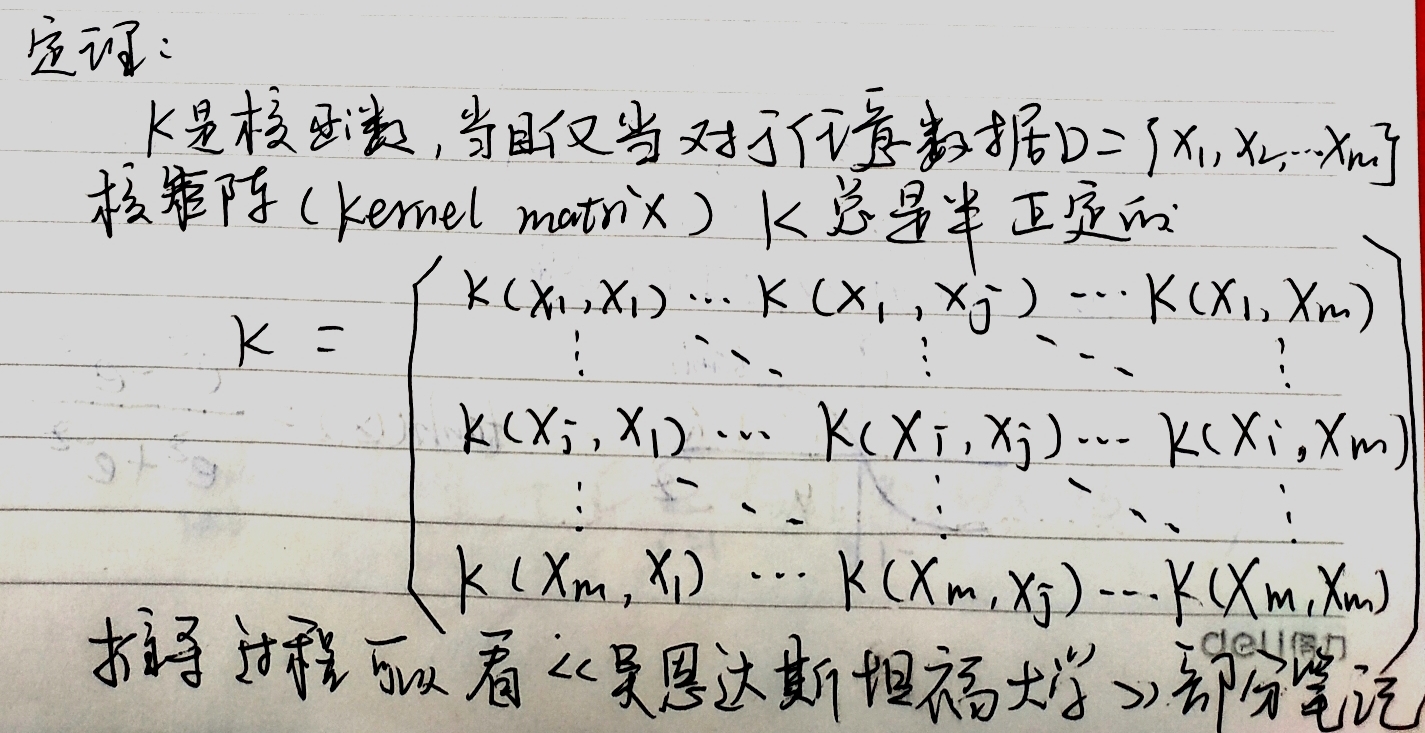 定理：
K是核函数，当且仅当对于任意数据D={x₁,x₂,…xₘ}
核矩阵(kernel matrix) K总是半正定的
K(x₁,x₁) … K(x₁,xⱼ) … K(x₁,xₘ)
K =
⋮ ⋱ ⋮ ⋱ ⋮
K(xᵢ,x₁) … K(xᵢ,xⱼ) … K(xᵢ,xₘ)
⋮ ⋱ ⋮ ⋱ ⋮
K(xₘ,x₁) … K(xₘ,xⱼ) … K(xₘ,xₘ)
deli得力
推导过程可以看《吴恩达斯坦福大学》部分笔记